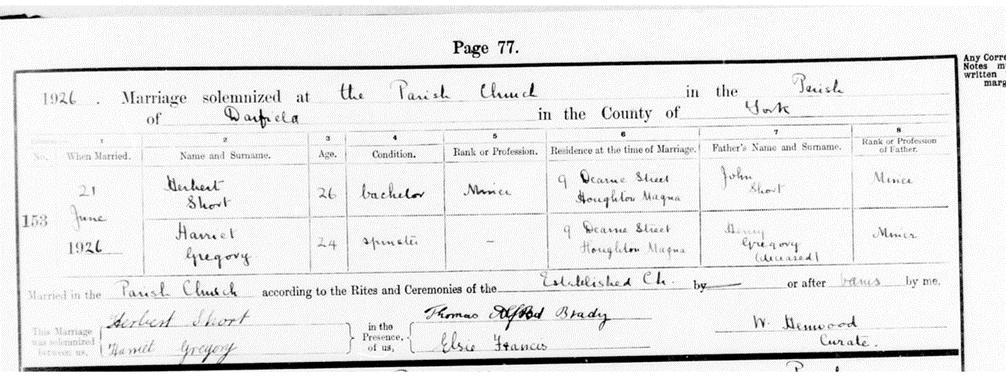 Page 77.
Any Corre
Notes m
written
marg
1926. Marriage solemnized at the Parish Church in the Parish
of Darfield in the County of York
No. 1 When Married. 2 Name and Surname. 3 Age. 4 Condition. 5 Rank or Profession. 6 Residence at the time of Marriage. 7 Father's Name and Surname. 8 Rank or Profession of Father.
153 21 June 1926
Herbert Short 26 bachelor Miner 9 Dearne Street Houghton Magna John Short Miner
Harriet Gregory 24 spinster - 9 Dearne Street Houghton Magna Henry Gregory (deceased) Miner
Married in the Parish Church according to the Rites and Ceremonies of the Established Ch. by or after banns by me,
This Marriage was solemnized between us, Herbert Short Harriet Gregory in the Presence, of us, Thomas Alfred Brady Elsie Francis W. Henwood Curate.